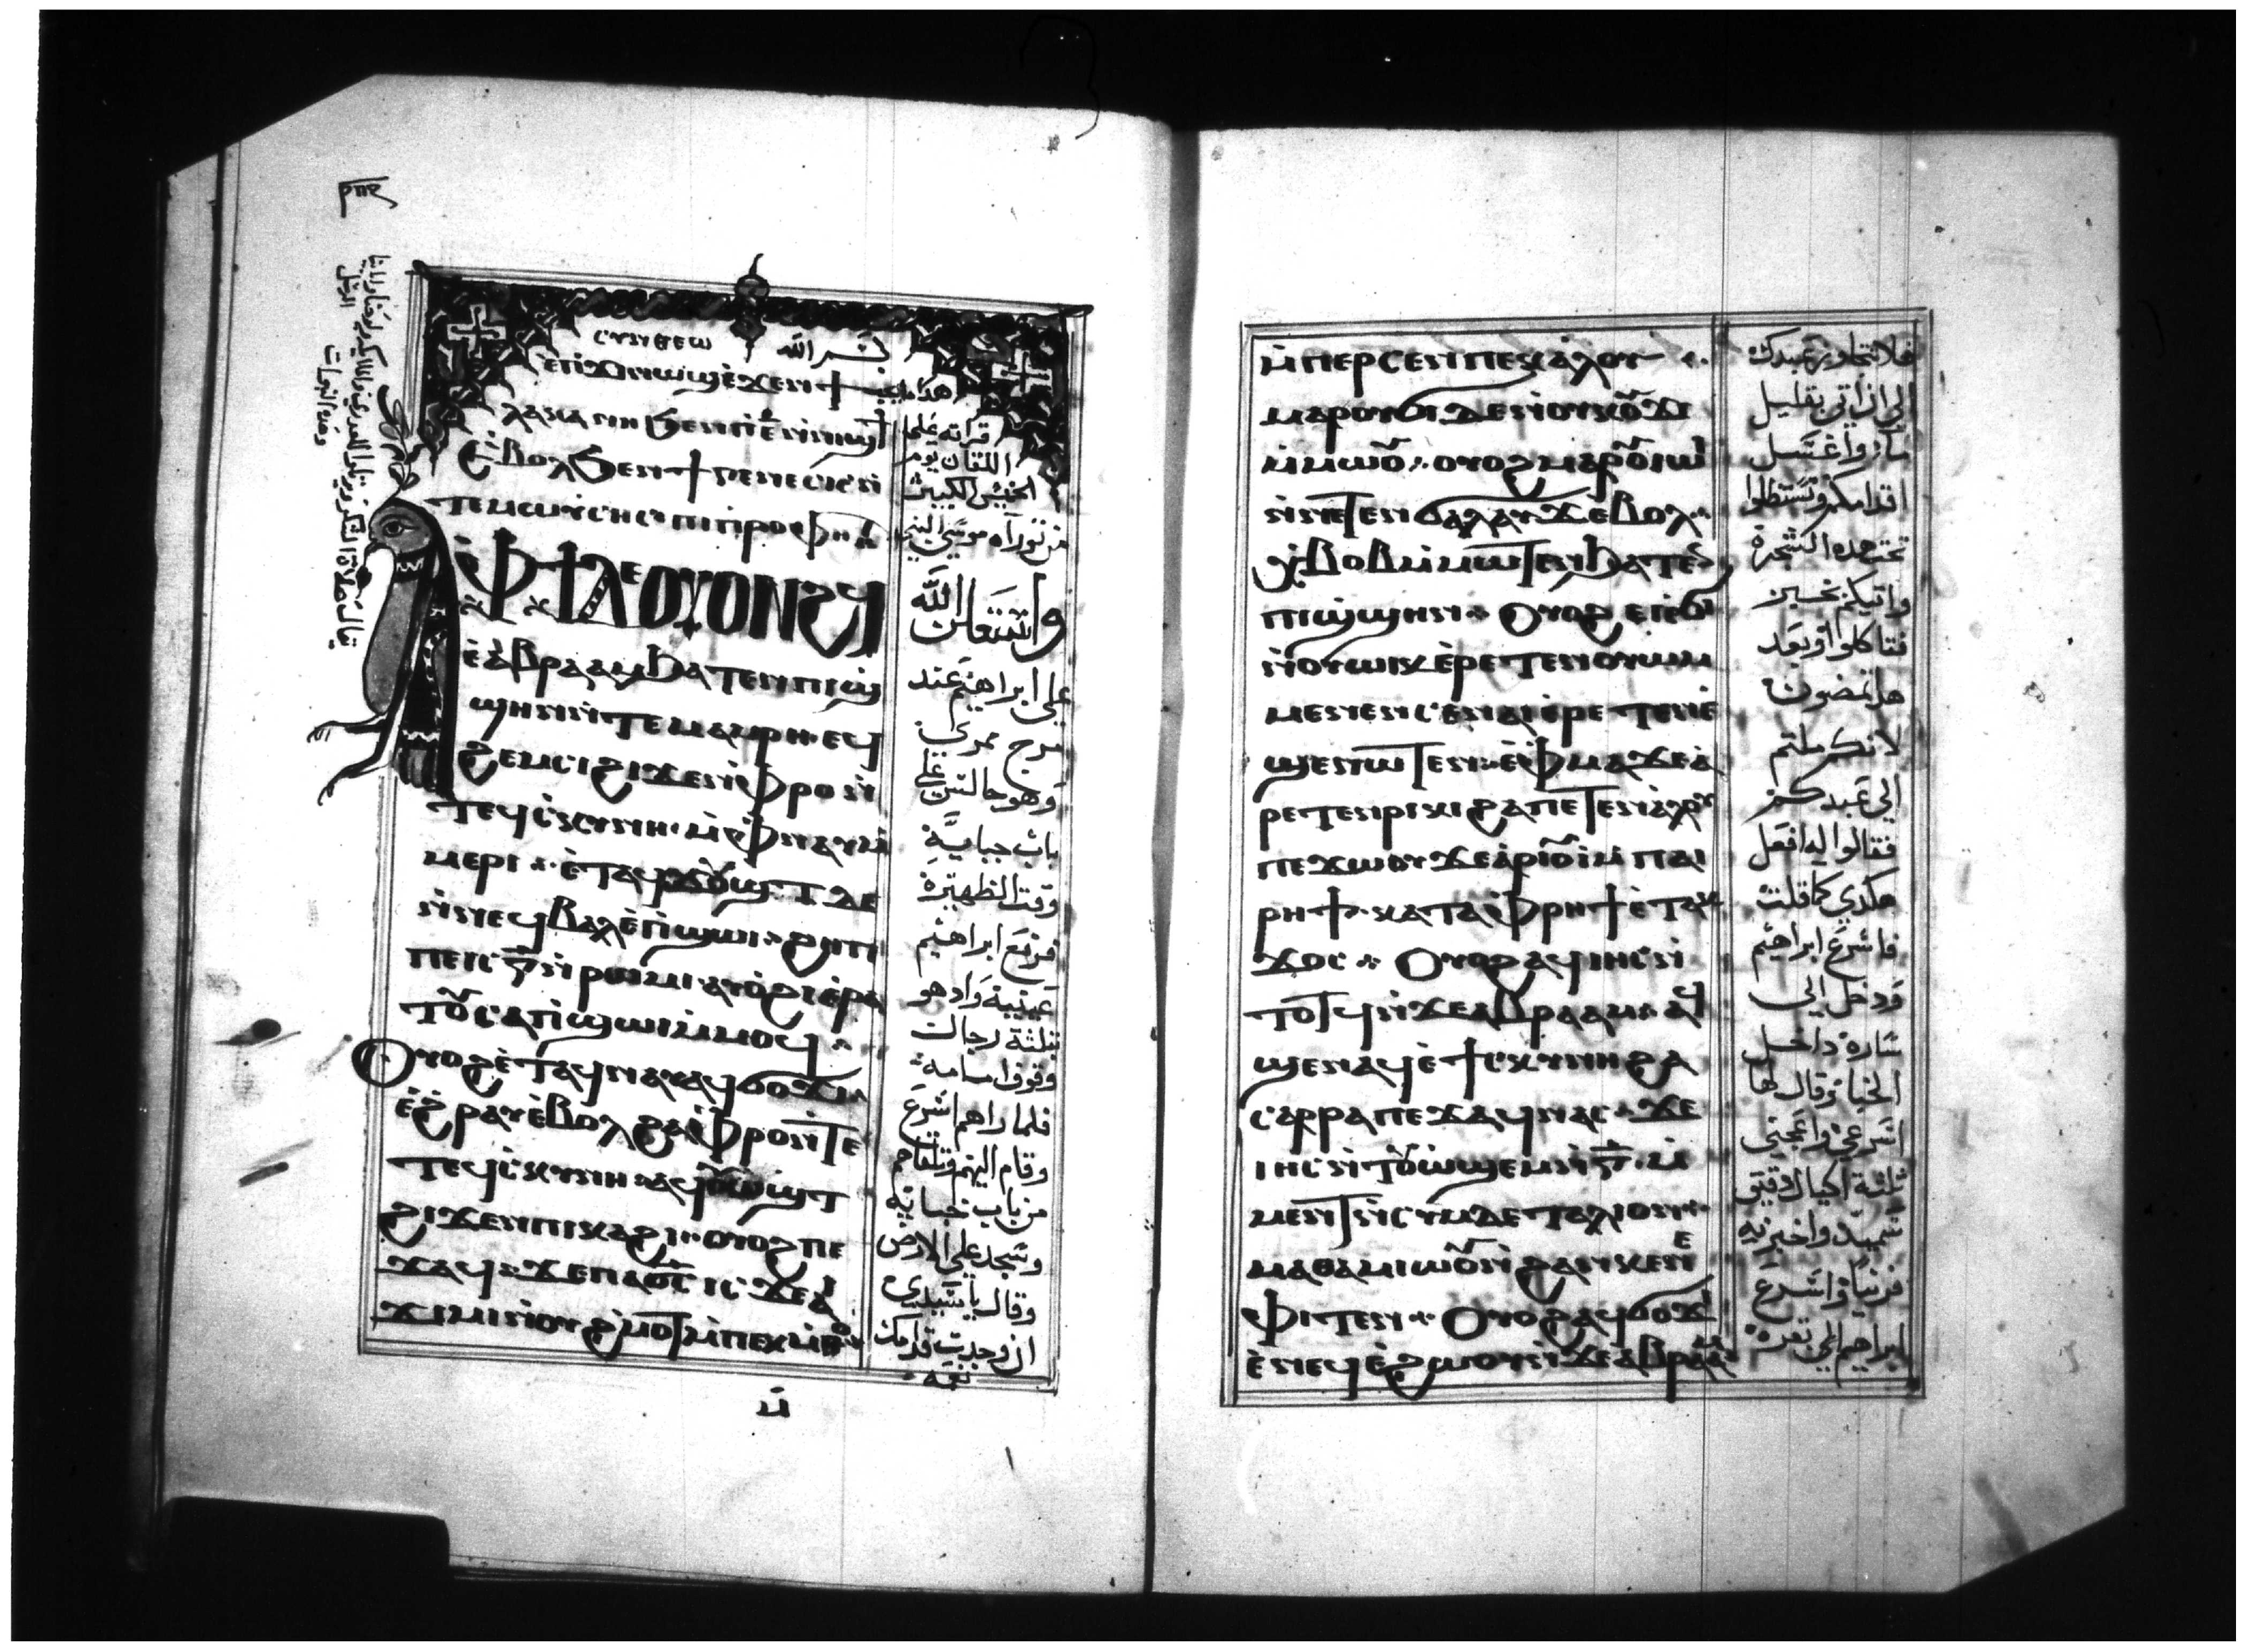 ⲥⲩⲛⲑⲉⲱ
بسم الله
ⲉⲃⲟⲗϧⲉⲛϯⲅⲉⲛⲉⲥⲓⲥⲛ̀
ⲧⲉⲙⲱⲩⲥⲏⲥⲡⲓⲡⲣⲟⲫ
ⲫϯⲇⲉⲟⲩⲟⲛϩϥ
ⲉ̀ⲁⲃⲣⲁⲁⲙϧⲁⲧⲉⲛⲡⲓϣ
ϣⲏⲛⲛ̀ⲧⲉⲙⲁⲙⲣⲏⲉϥ
ϩⲉⲙⲥⲓϩⲓϫⲉⲛⲫⲣⲟⲛ̀
ⲧⲉϥⲥⲕⲩⲛⲏⲙ̀ⲫⲛⲁⲩⲙ̀
ⲙⲉⲣⲓ ⲉ̀ⲧⲁϥϫⲟⲩϣⲧⲇⲉ
ⲛ̀ⲛⲉϥⲃⲁⲗⲉ̀ⲡϣⲱⲓ ϩⲏⲡⲡ
ⲡⲉⲓⲥⲅ̅ⲛ̀ⲣⲱⲙⲓⲁⲩⲟϩⲓⲉ̀ⲣⲁ
ⲧⲟⲩⲥⲁⲡϣⲱⲓⲙ̀ⲙⲟϥ
ⲟⲩⲟϩⲉ̀ⲧⲁϥⲛⲁⲩⲁϥϭⲟϫⲓ
ⲉ̀ϩⲣⲁⲩⲉ̀ⲃⲟⲗϩⲁⲫⲣⲟⲛ̀ⲧⲉ
ⲧⲉϥⲥⲕⲩⲛⲏ ⲁϥⲟⲩⲱϣⲧ
ϩⲓϫⲉⲛⲡⲓⲕⲁϩⲓ ⲟⲩⲟϩⲡⲉ
ϫⲁϥ ϫⲉⲡⲁϭⲥ̅ ⲓⲥϫⲉⲁ
ϫⲓⲙⲓⲛ̀ⲟⲩϩ̀ⲙⲟⲧⲙ̀ⲡⲉⲕⲙ̀ⲑⲟ
قراته على
اللقان يوم
الخميس الكبير
من توراة موسى النبي
واستعلن الله
على ابراهيم عند
وهو جالس على
باب خبايه
وقت الظهيرة
فرفع ابراهيم
عينيه واذ هو
بثلثة رجال
وقوف امامه
فلما راهم اسرع
وقام اليهم وتلقاهم
من باب خبايه
وسجد على الارض
وقال يا سيدي
ان وجدت قدامك
نعمه
ⲙ̀ⲡⲉⲣⲥⲉⲛⲡⲉⲕⲁ̀ⲗⲟⲩ
ⲙⲁⲣⲟⲩϭⲓⲇⲉⲛ̀ⲟⲩⲕⲟⲩϫⲓ
ⲙ̀ⲙⲱⲟⲩ ⲟⲩⲟϩⲙⲁⲣⲟⲩⲓⲱ
ⲛ̀ⲛⲉⲧⲉⲛϭⲁⲗⲁⲩϫⲉⲃⲟⲗ
ϩ̀ⲃⲟⲃⲙ̀ⲙⲱⲧⲉⲛϧⲁⲧⲉⲛ
ⲡⲓϣϣⲏⲛ ⲟⲩⲟϩⲉⲓⲉ̀ϭⲓ
ⲛ̀ⲟⲩⲱⲓⲕⲉⲣⲉⲧⲉⲛⲟⲩⲱⲙ
ⲙⲉⲛⲉⲛⲥⲉⲛⲁⲓⲉⲣⲉⲧⲉⲛⲉ̀
ϣⲉⲛⲱⲧⲉⲛ ⲉ̀ⲫⲙⲁϫⲉⲁ̀
ⲣⲉⲧⲉⲛⲣⲓⲕⲓϩⲁⲡⲉⲧⲉⲛⲁⲗⲟⲩ
ⲡⲉϫⲱⲟⲩϫⲉⲁ̀ⲣⲓⲟⲩⲓⲙ̀ⲡⲁⲓ
ⲣⲏϯ ⲕⲁⲧⲁⲫⲣⲏϯⲉ̀ⲧⲁⲕ
ϫⲟⲥ ⲟⲩⲟϩⲁϥⲓⲏⲥⲛ̀
ⲧⲟⲧϥⲛ̀ϫⲉⲁⲃⲣⲁⲁⲙ ⲁϥ
ϣⲉⲛⲁϥⲉ̀ϯⲥⲕⲩⲛⲏϩⲁ
ⲥⲁⲣⲣⲁⲡⲉϫⲁϥⲛⲁⲥ ϫⲉ
ⲓⲏⲥⲛ̀ⲧⲟⲩⲱ̀ϣⲉⲙⲛ̀ⲅ̅ⲙ̀
ⲙⲉⲛⲧⲛ̀ⲥⲩⲙⲇⲉⲧⲁⲗⲓⲟⲛ
ⲙⲁⲑⲁⲙⲓⲱⲟⲩⲛ̀ϩⲁⲛⲕⲉⲛⲉ
ⲫⲓⲧⲉⲛ ⲟⲩⲟϩⲁϥϭⲟϫⲓ
ⲉ̀ⲛⲉϥⲉ̀ϩⲱⲟⲩⲛ̀ϫⲉⲁⲃⲣⲁⲁⲙ
فلا تتجاوز عبدك
الى ان اتي بقليل
ماء واغسل
اقدامكم وتستظلوا
تحت هذه الشجرة
واتيكم بخبز
فتاكلوا وبعد
هذا تمضون
لانكم ملتم
الى عبدكم
فقالوا له افعل
هكذي كما قلت
فاسرع ابراهيم
ودخل الى
ساره داخل
الخبا وقال لها
اسرعي واعجني
ثلثة اكيال دقيق
سميد واخبزيه
فرنيا واسرع
ابراهيم الى بقره